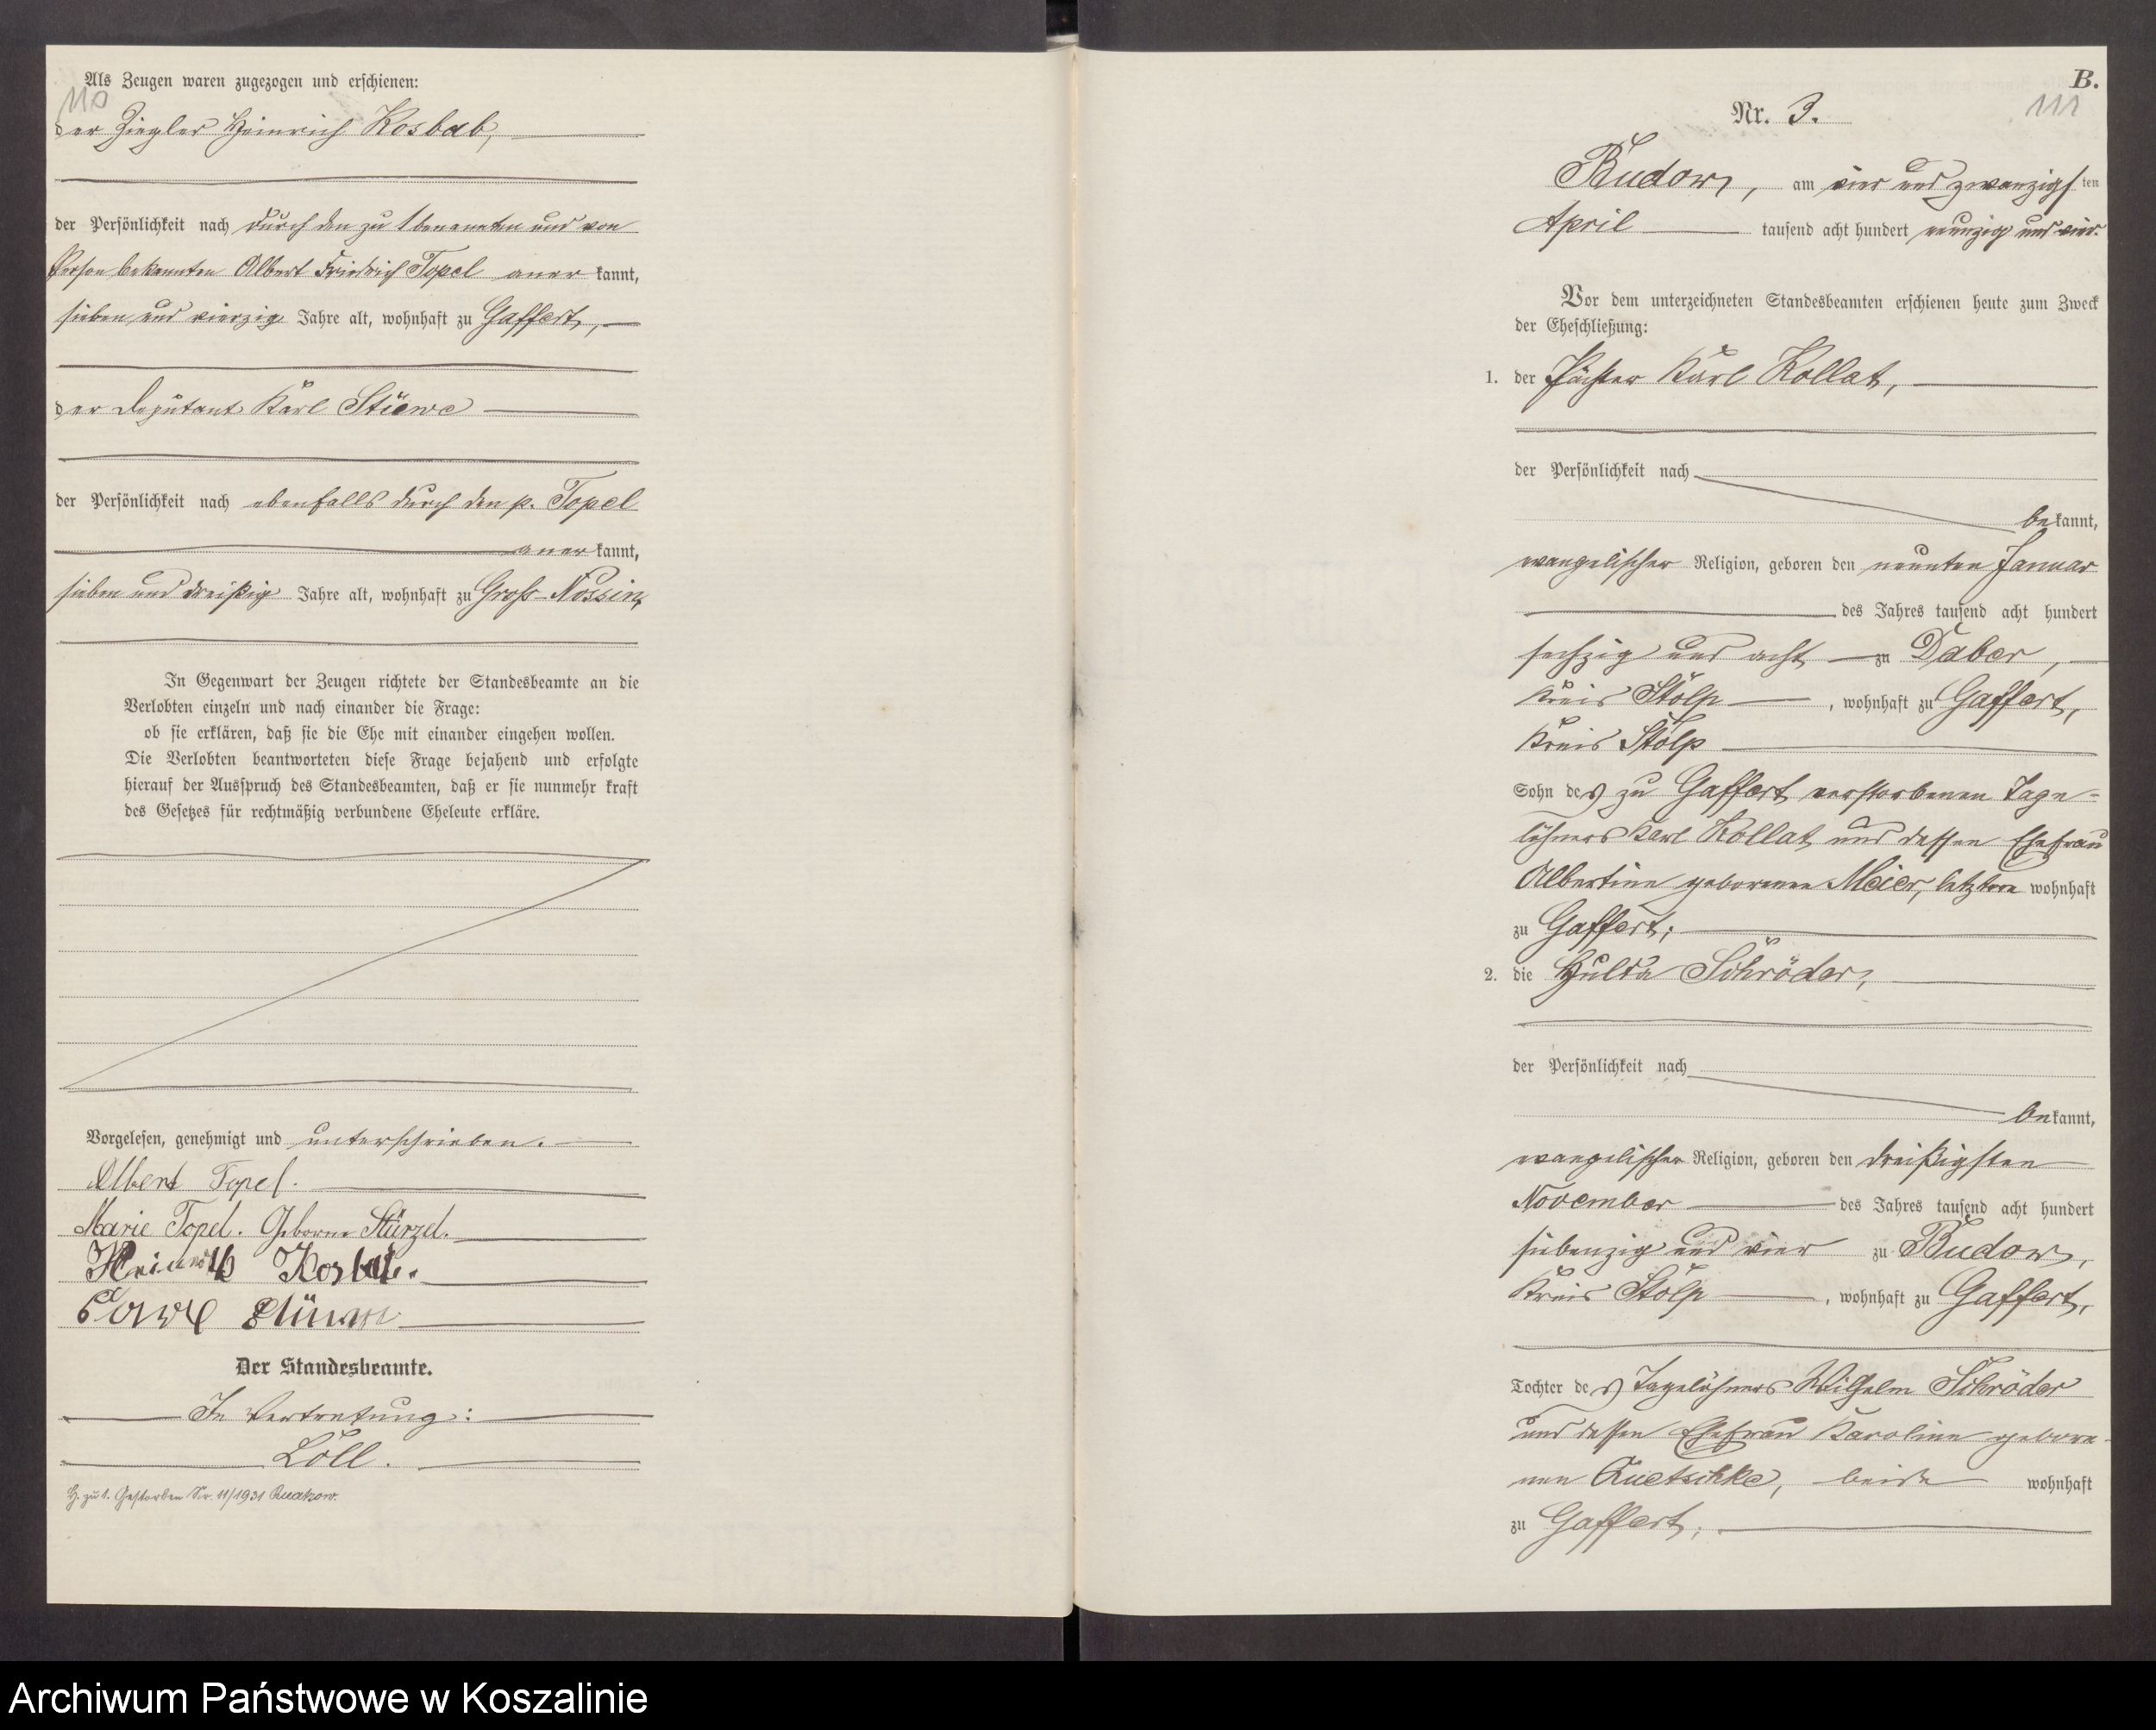 Als Zeugen waren zugezogen und erschienen:
110
der Ziegler Heinrich Kosbab,
der Persönlichkeit nach durch den zu 1 benannten und von
Person bekannten Albert Friedrich Topel anerkannt,
sieben und vierzig Jahre alt, wohnhaft zu Gaffert,
der Deputant Karl Stüwe
der Persönlichkeit nach ebenfalls durch den p. Topel
anerkannt,
sieben und dreißig Jahre alt, wohnhaft zu Groß-Nossin,
In Gegenwart der Zeugen richtete der Standesbeamte an die
Verlobten einzeln und nach einander die Frage:
ob sie erklären, daß sie die Ehe mit einander eingehen wollen.
Die Verlobten beantworteten diese Frage bejahend und erfolgte
hierauf der Ausspruch des Standesbeamten, daß er sie nunmehr kraft
des Gesetzes für rechtmäßig verbundene Eheleute erkläre.
Vorgelesen, genehmigt und unterschrieben.
Albert Topel.
Marie Topel. Geborne Stürzel.
Heinrich Kosbab.
Karl Stüwe
Der Standesbeamte.
In Vertretung:
Löll.
H. zu 1. Gestorben Nr. 11/1931
B.
111
Nr. 3.
Budow, am vier und zwanzigsten
April tausend acht hundert neunzig und vier.
Vor dem unterzeichneten Standesbeamten erschienen heute zum Zweck
der Eheschließung:
1. der Pächter Karl Kollat,
der Persönlichkeit nach
bekannt,
evangelischer Religion, geboren den neunten Januar
des Jahres tausend acht hundert
sechzig und acht zu Daber,
Kreis Stolp, wohnhaft zu Gaffert,
Kreis Stolp
Sohn des zu Gaffert verstorbenen Tage-
löhners Karl Kollat und dessen Ehefrau
Albertine geborenen Meier, letztere wohnhaft
zu Gaffert;
2. die Hulda Schröder,
der Persönlichkeit nach
bekannt,
evangelischer Religion, geboren den dreißigsten
November des Jahres tausend acht hundert
siebenzig und vier zu Budow,
Kreis Stolp, wohnhaft zu Gaffert,
Tochter des Tagelöhners Wilhelm Schröder
und dessen Ehefrau Karoline gebore-
nen Quetschke, beide wohnhaft
zu Gaffert;
Archiwum Państwowe w Koszalinie